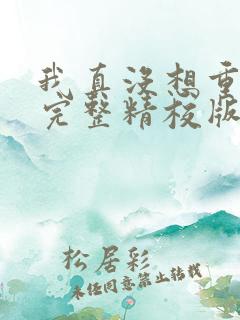 我真没想重
完整精校版
松居彩
未经同意禁止转载